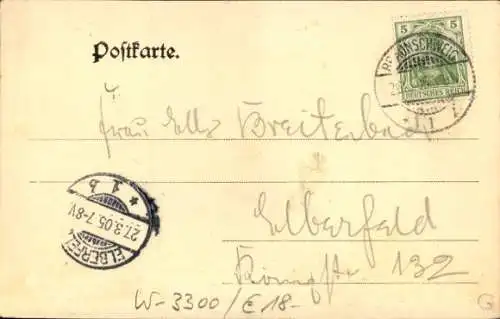 Postkarte.
5 5
DEUTSCHES REICH
BRAUNSCHWEIG
* 1 1
Frau Elly Breitenbach
Elberfeld
Königstr 132
ELBERFELD
27.3.05.7-8V.
* 1 b
W-3300/E18-